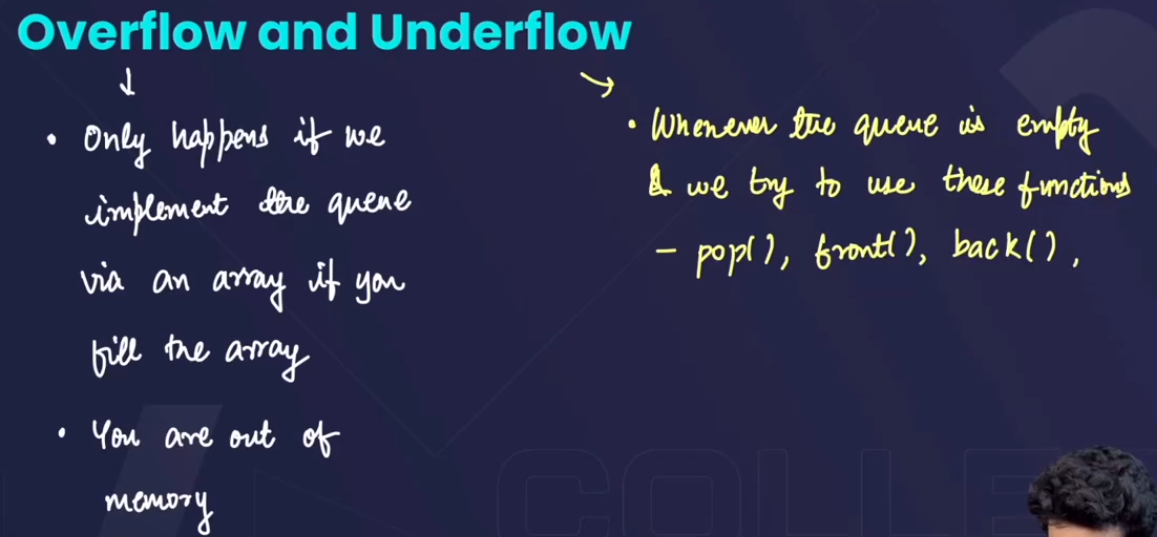 Overflow and Underflow
↓
• Only happens if we
implement the queue
via an array if you
fill the array
• You are out of
memory
→
• Whenever the queue is empty
& we try to use these functions
– pop(), front(), back(),
COLLE